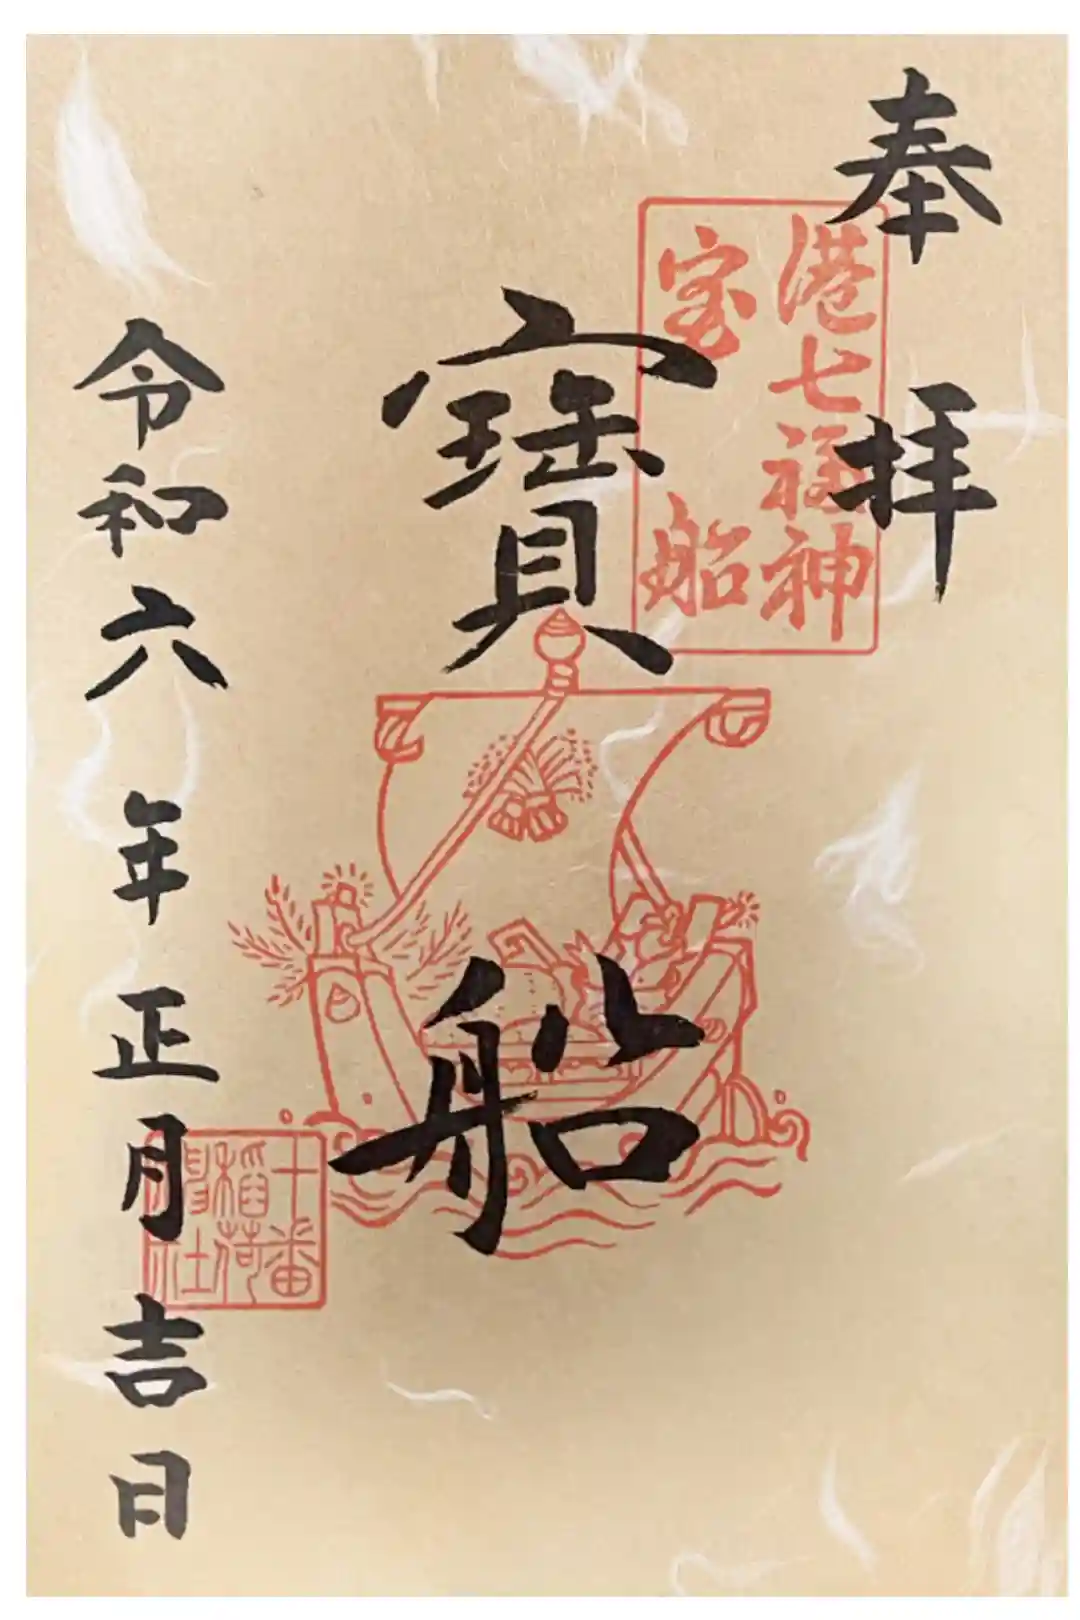 奉拝
港七福神
宝船
寳船
令和六年正月吉日
十番
稲荷
神社